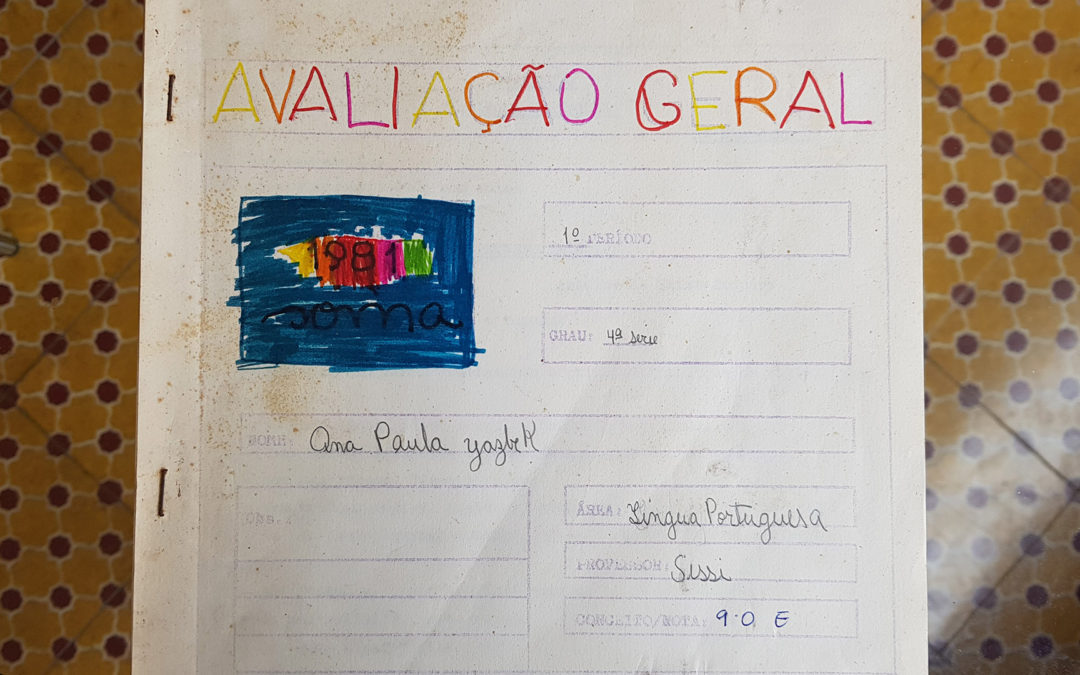 AVALIAÇÃO GERAL
1981
soma
1º PERÍODO
GRAU: 4ª série
NOME: Ana Paula yazbek
Obs.:
ÁREA: Língua Portuguesa
PROFESSOR: Sissi
CONCEITO/NOTA: 9.0 E